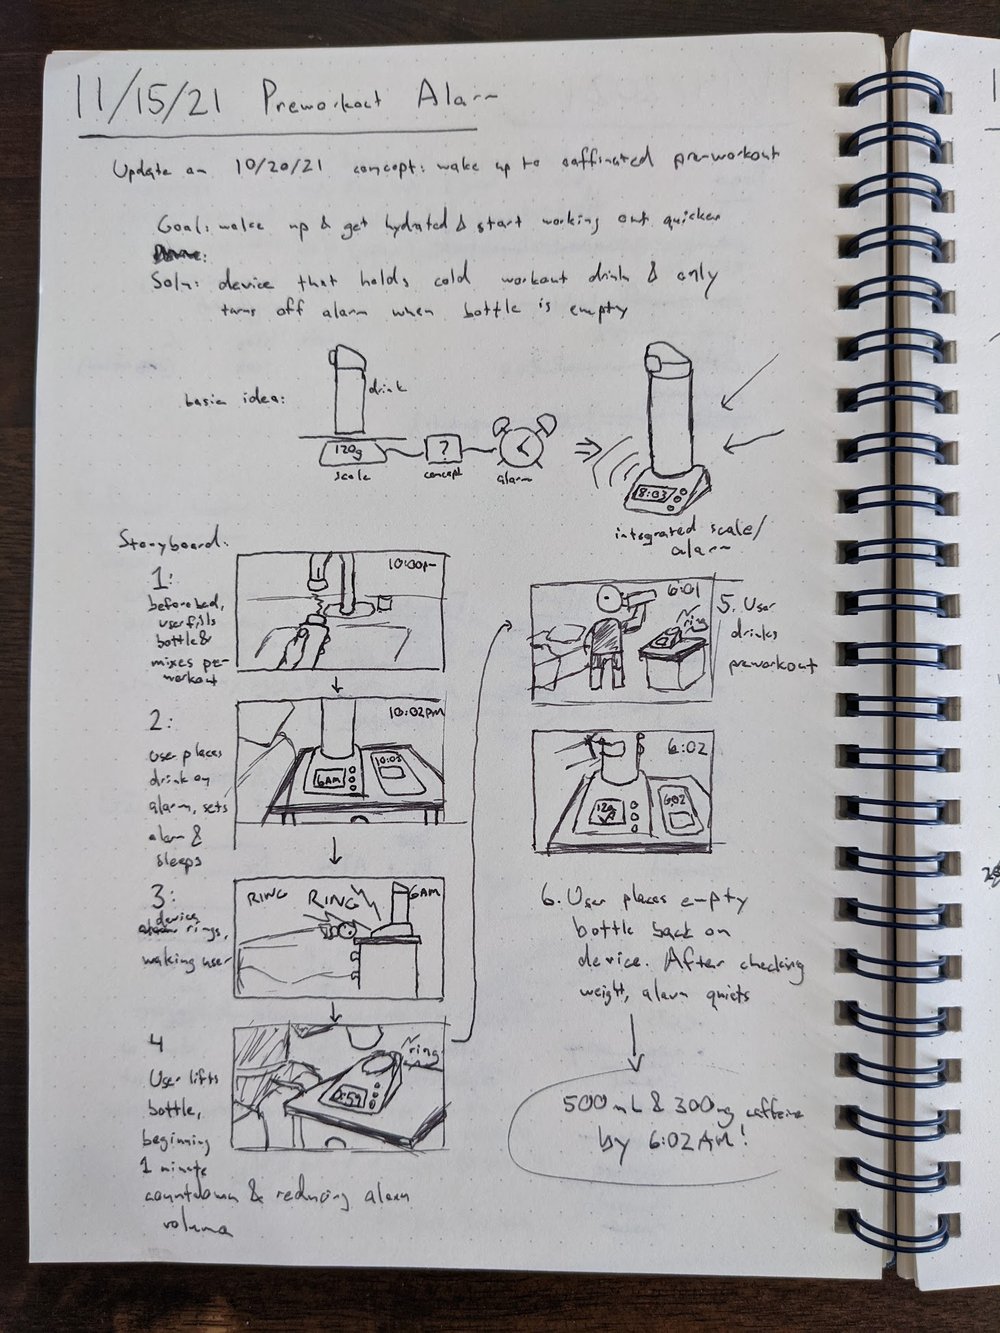 11/15/21 Preworkout Alarm
Update on 10/20/21 concept: wake up to caffinated pre-workout
Goal: wake up & get hydrated & start working out quicker
Soln: device that holds cold workout drink & only
turns off alarm when bottle is empty
basic idea:
drink
120g
scale
?
concept
alarm
8:03
integrated scale/
alarm
Storyboard:
1:
before bed,
user fills
bottle &
mixes pre-
workout
10:00pm
2:
user places
drink on
alarm, sets
alarm &
sleeps
10:02PM
6AM
10:02
3:
device
alarm rings,
waking user
RING RING
6AM
4
User lifts
bottle,
beginning
1 minute
countdown & reducing alarm
volume
ring
:59
6:01
ring
5. User
drinks
preworkout
6:02
12g
6:02
6. User places empty
bottle back on
device. After checking
weight, alarm quiets
500mL & 300mg caffeine
by 6:02AM!